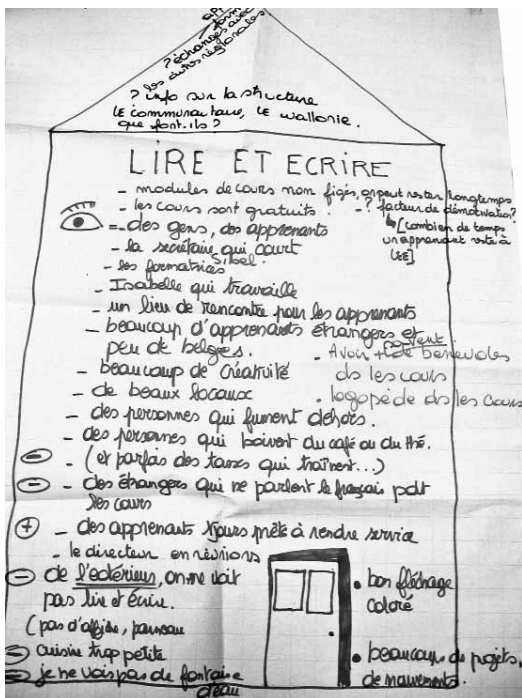 ? échanges avec
les autres régionales
? info sur la structure
LE communautaire, LE wallonie.
que font-ils ?
LIRE ET ECRIRE
- modules de cours non figés, on peut rester longtemps
- les cours sont gratuits. - ? facteur de démotivation ?
[combien de temps
un apprenant reste à
LEE]
- des gens, des apprenants
- la secrétaire qui court
- les formatrices Sibel.
- Isabelle qui travaille
- un lieu de rencontre pour les apprenants
- beaucoup d'apprenants étrangers et
peu de belges.
- beaucoup de créativité
- de beaux locaux
. Avoir + de bénévoles
ds les cours
. logopède ds les cours
- des personnes qui fument dehors.
- des personnes qui boivent du café ou du thé.
- (et parfais des tasses qui traînent...)
- des étrangers qui ne parlent le français pdt
les cours
+ - des apprenants tjours prêts à rendre service
- le directeur en réunions
- de l'extérieur, on ne voit
pas lire et écrire.
(pas d'affiche, panneau
- cuisine trop petite
- je ne vois pas de fontaine
d'eau
. bon fléchage
coloré
. beaucoup de projets,
de mouvements.